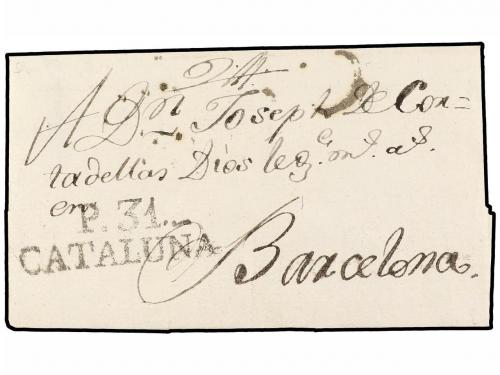 A Dn Joseph De Cor=
tadellas Dios le ge. ms. as.
en
P. 31.
CATALUÑA
Barcelona.